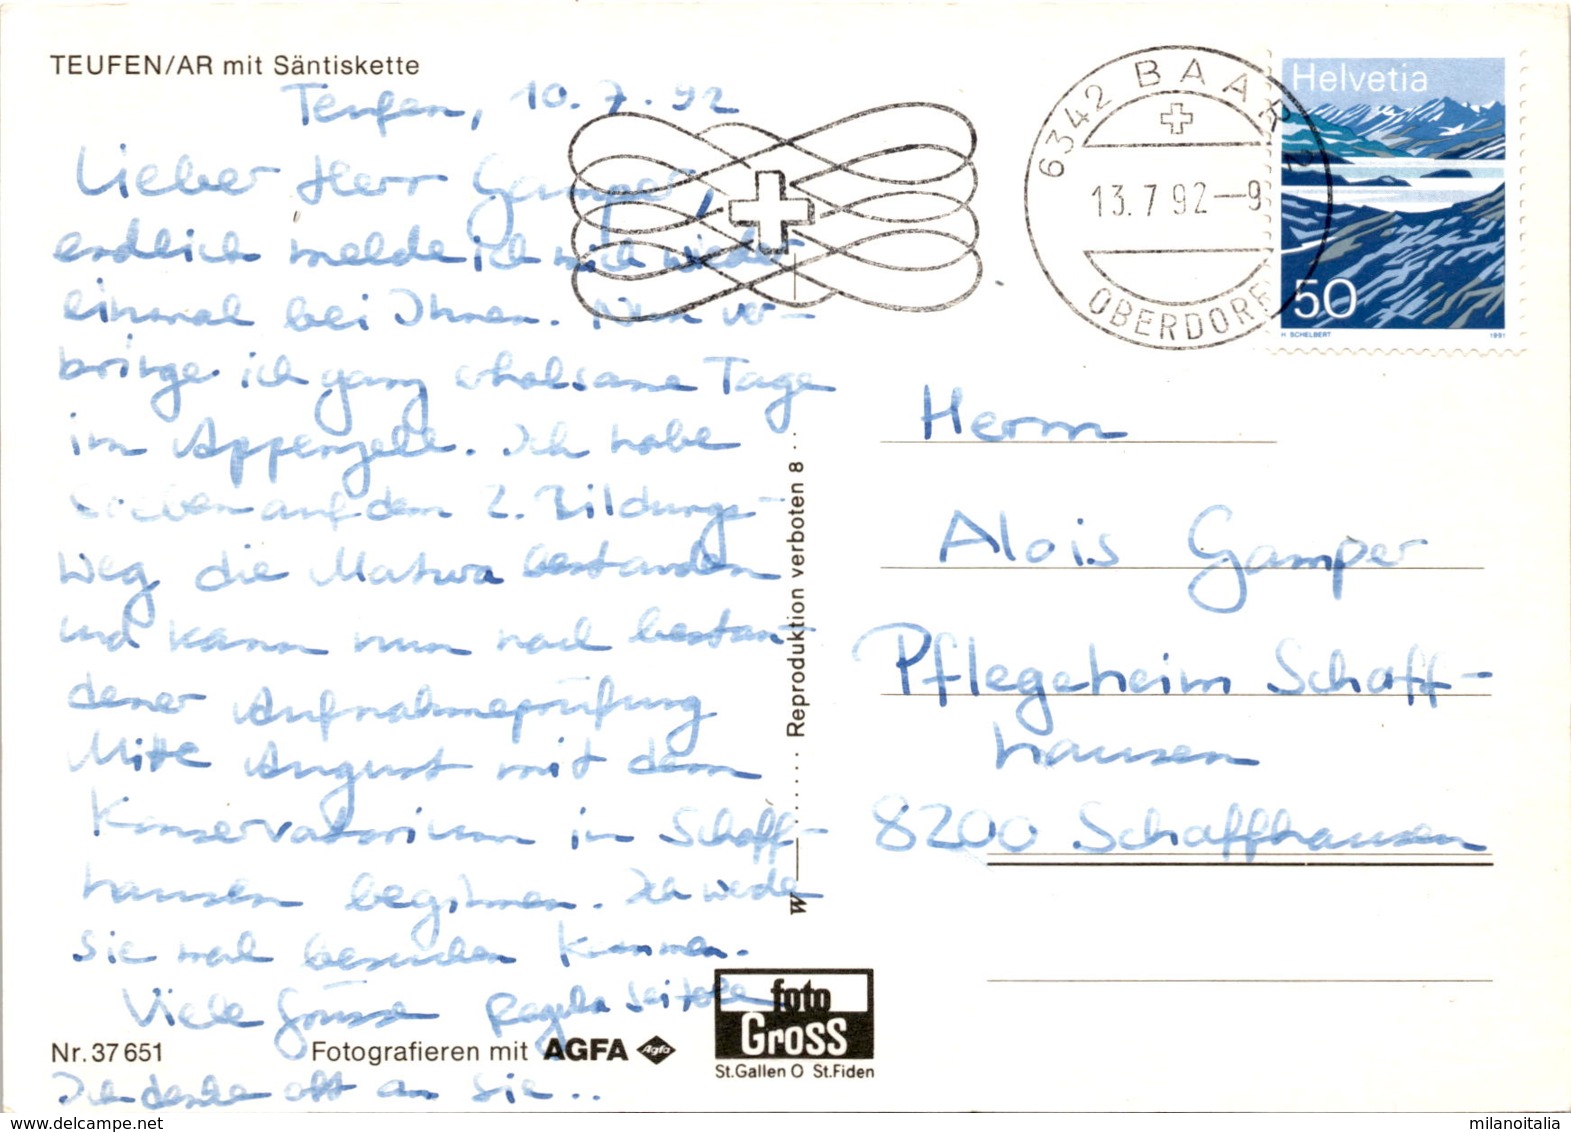 TEUFEN/AR mit Säntiskette
Teufen, 10.7.92
Lieber Herr Gamper,
endlich melde ich mich wieder
einmal bei Ihnen. Nun ver-
bringe ich ganz erholsame Tage
im Appenzell. Ich habe
soeben auf dem 2. Bildungs-
weg die Matura bestanden
und kann nun nach bestan-
dener Aufnahmeprüfung
Mitte August mit dem
Konservatorium in Schaff-
hausen beginnen. Ich werde
Sie mal besuchen kommen.
Viele Grüsse Regula
Ich denke oft an Sie..
Nr. 37 651
Fotografieren mit AGFA Agfa
foto
Gross
St.Gallen O St.Fiden
W Reproduktion verboten 8
6342 BAAR 2
13.7.92-9
OBERDORF
Helvetia
50
H. SCHELBERT 1991
Herrn
Alois Gamper
Pflegeheim Schaff-
hausen
8200 Schaffhausen
milanoitalia
www.delcampe.net